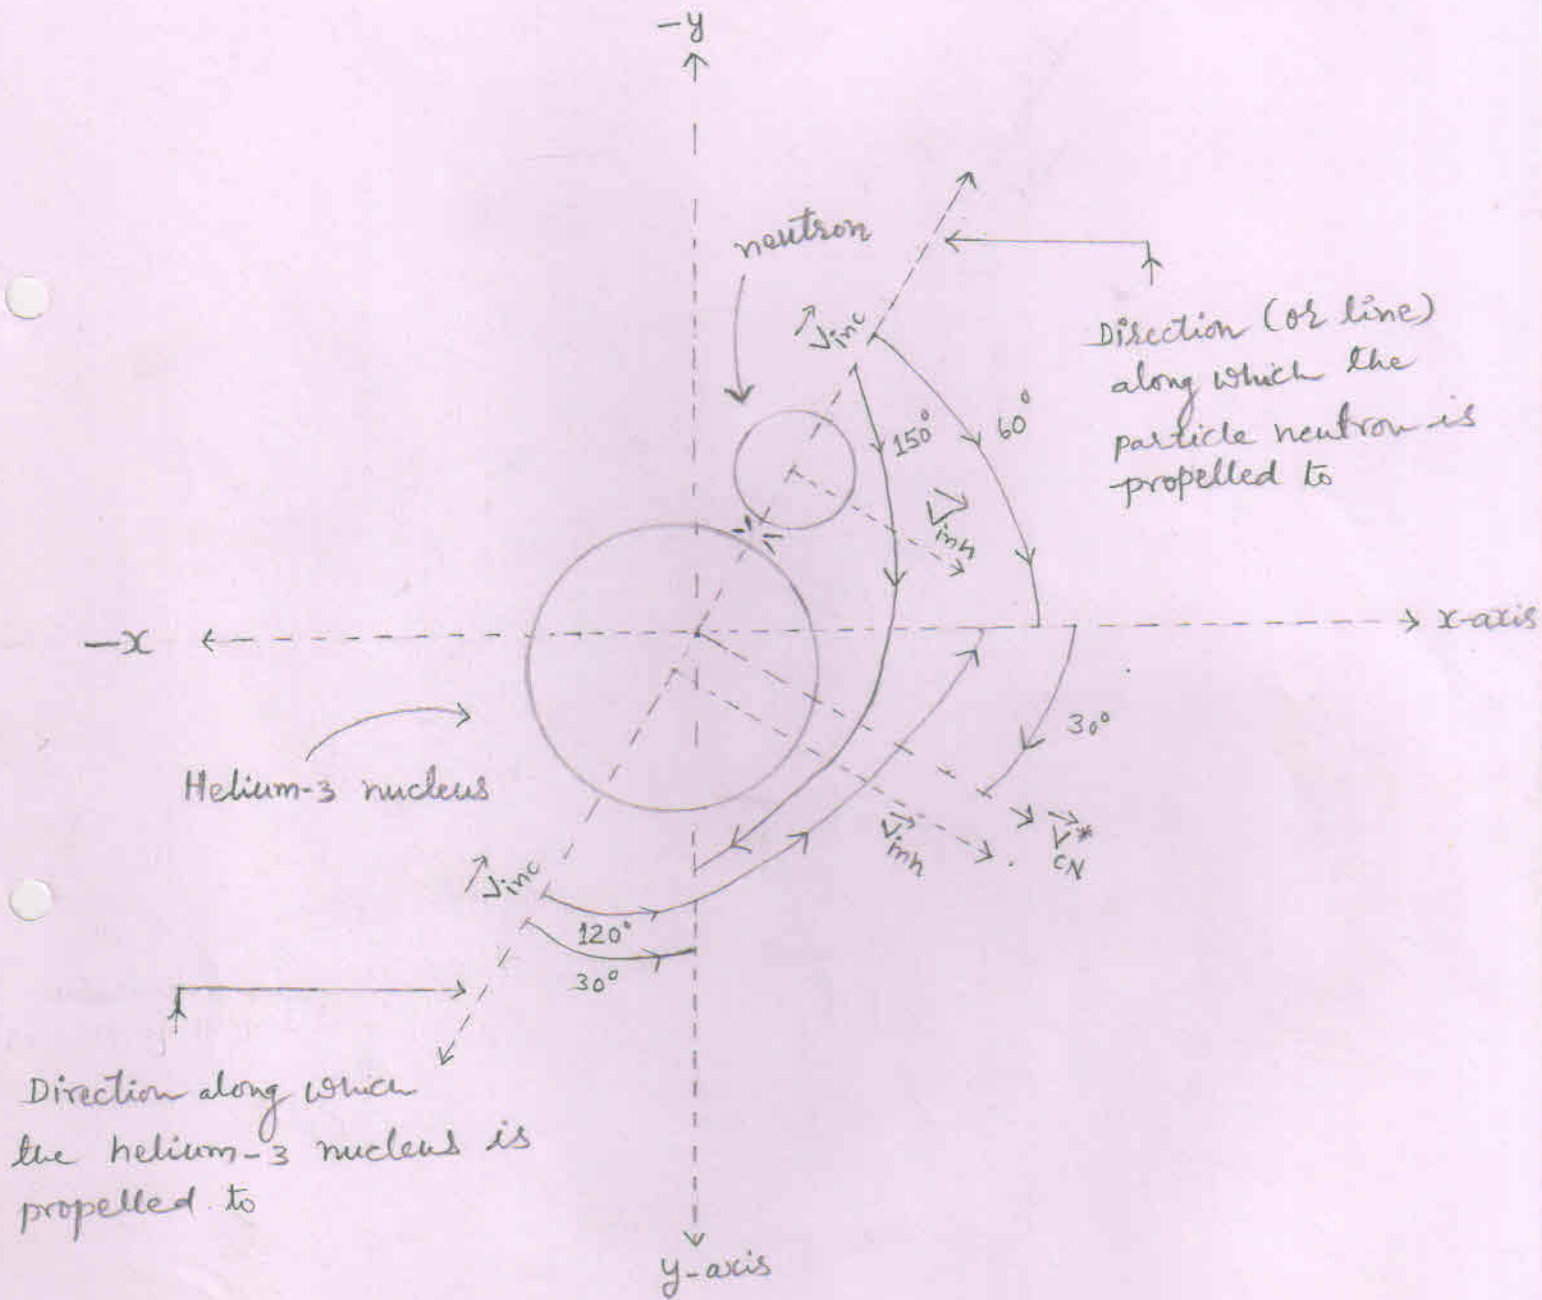 -y
neutron
V⃗inc
Direction (or line)
along which the
particle neutron is
propelled to
150°
60°
V⃗inh
-x
x-axis
30°
Helium-3 nucleus
V⃗inh
V⃗*CN
V⃗inc
120°
30°
Direction along which
the helium-3 nucleus is
propelled to
y-axis